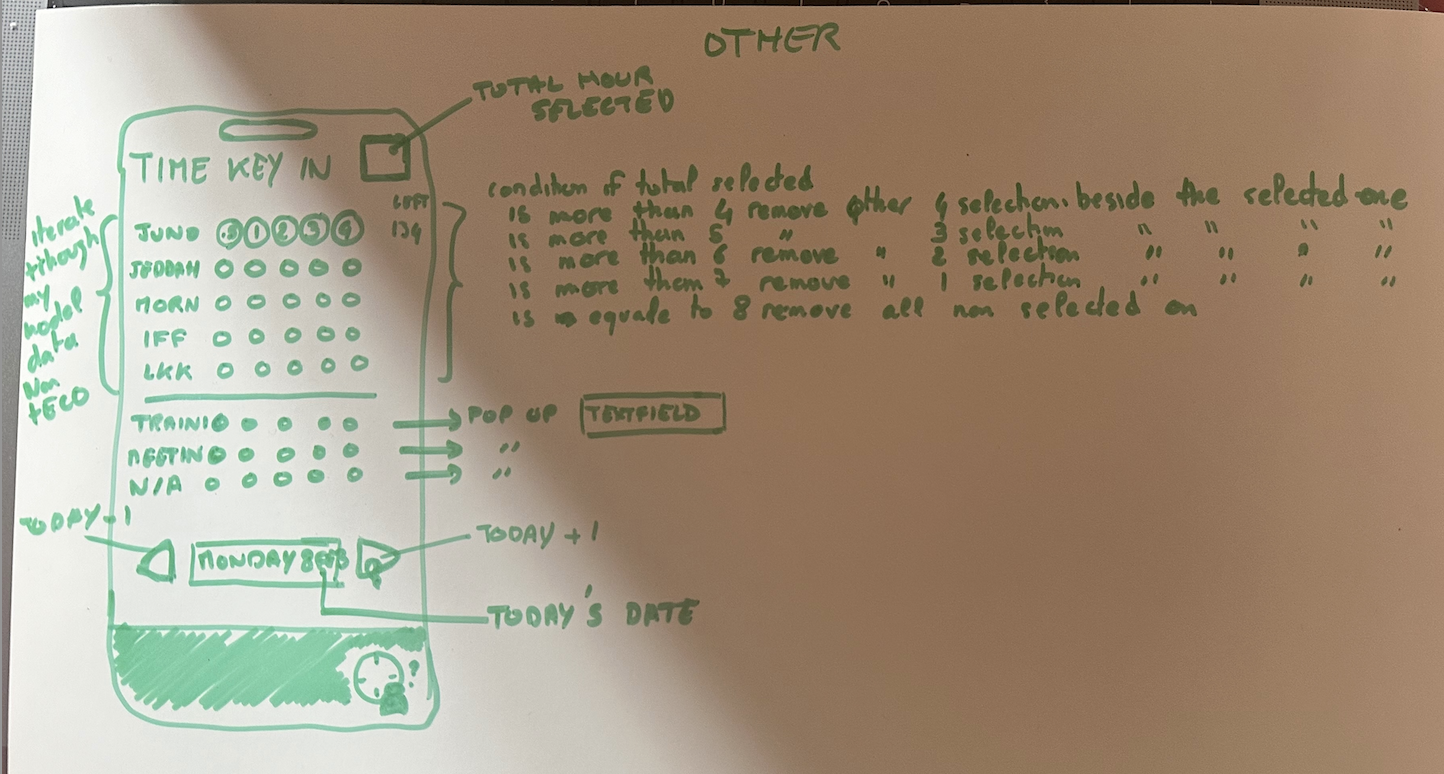 OTHER
TOTAL HOUR
SELECTED
TIME KEY IN
LEFT
134
iterate
through
my
model
data
Non
TECO
JUNO .5 1 2 3 4
JEDDAH
HORN
IFF
LKK
condition if total selected
is more than 4 remove other 4 selection. beside the selected one
is more than 5 " 3 selection " " " "
is more than 6 remove " 2 selection " " " "
is more them 7 remove " 1 selection " " " "
is equale to 8 remove all non selected on
TRAINI
MEETIN
N/A
POP UP TEXTFIELD
"
"
TODAY - 1
MONDAY
TODAY + 1
TODAY'S DATE
?